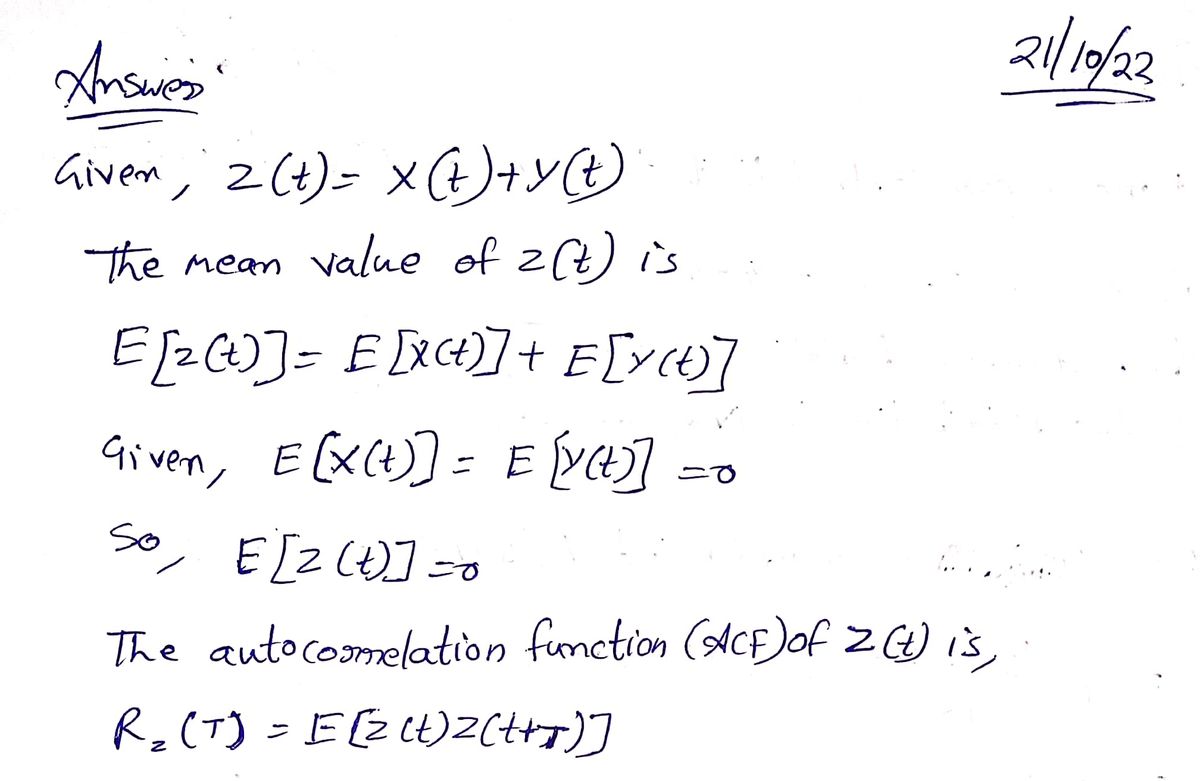 Answer
21/10/22
Given, z(t)= x(t)+y(t)
The mean value of z(t) is
E[z(t)]= E[x(t)]+ E[y(t)]
Given, E[x(t)] = E[y(t)] =0
So, E[z(t)] =0
The autocorrelation function (ACF) of z(t) is,
Rz(T) = E[z(t)z(t+T)]